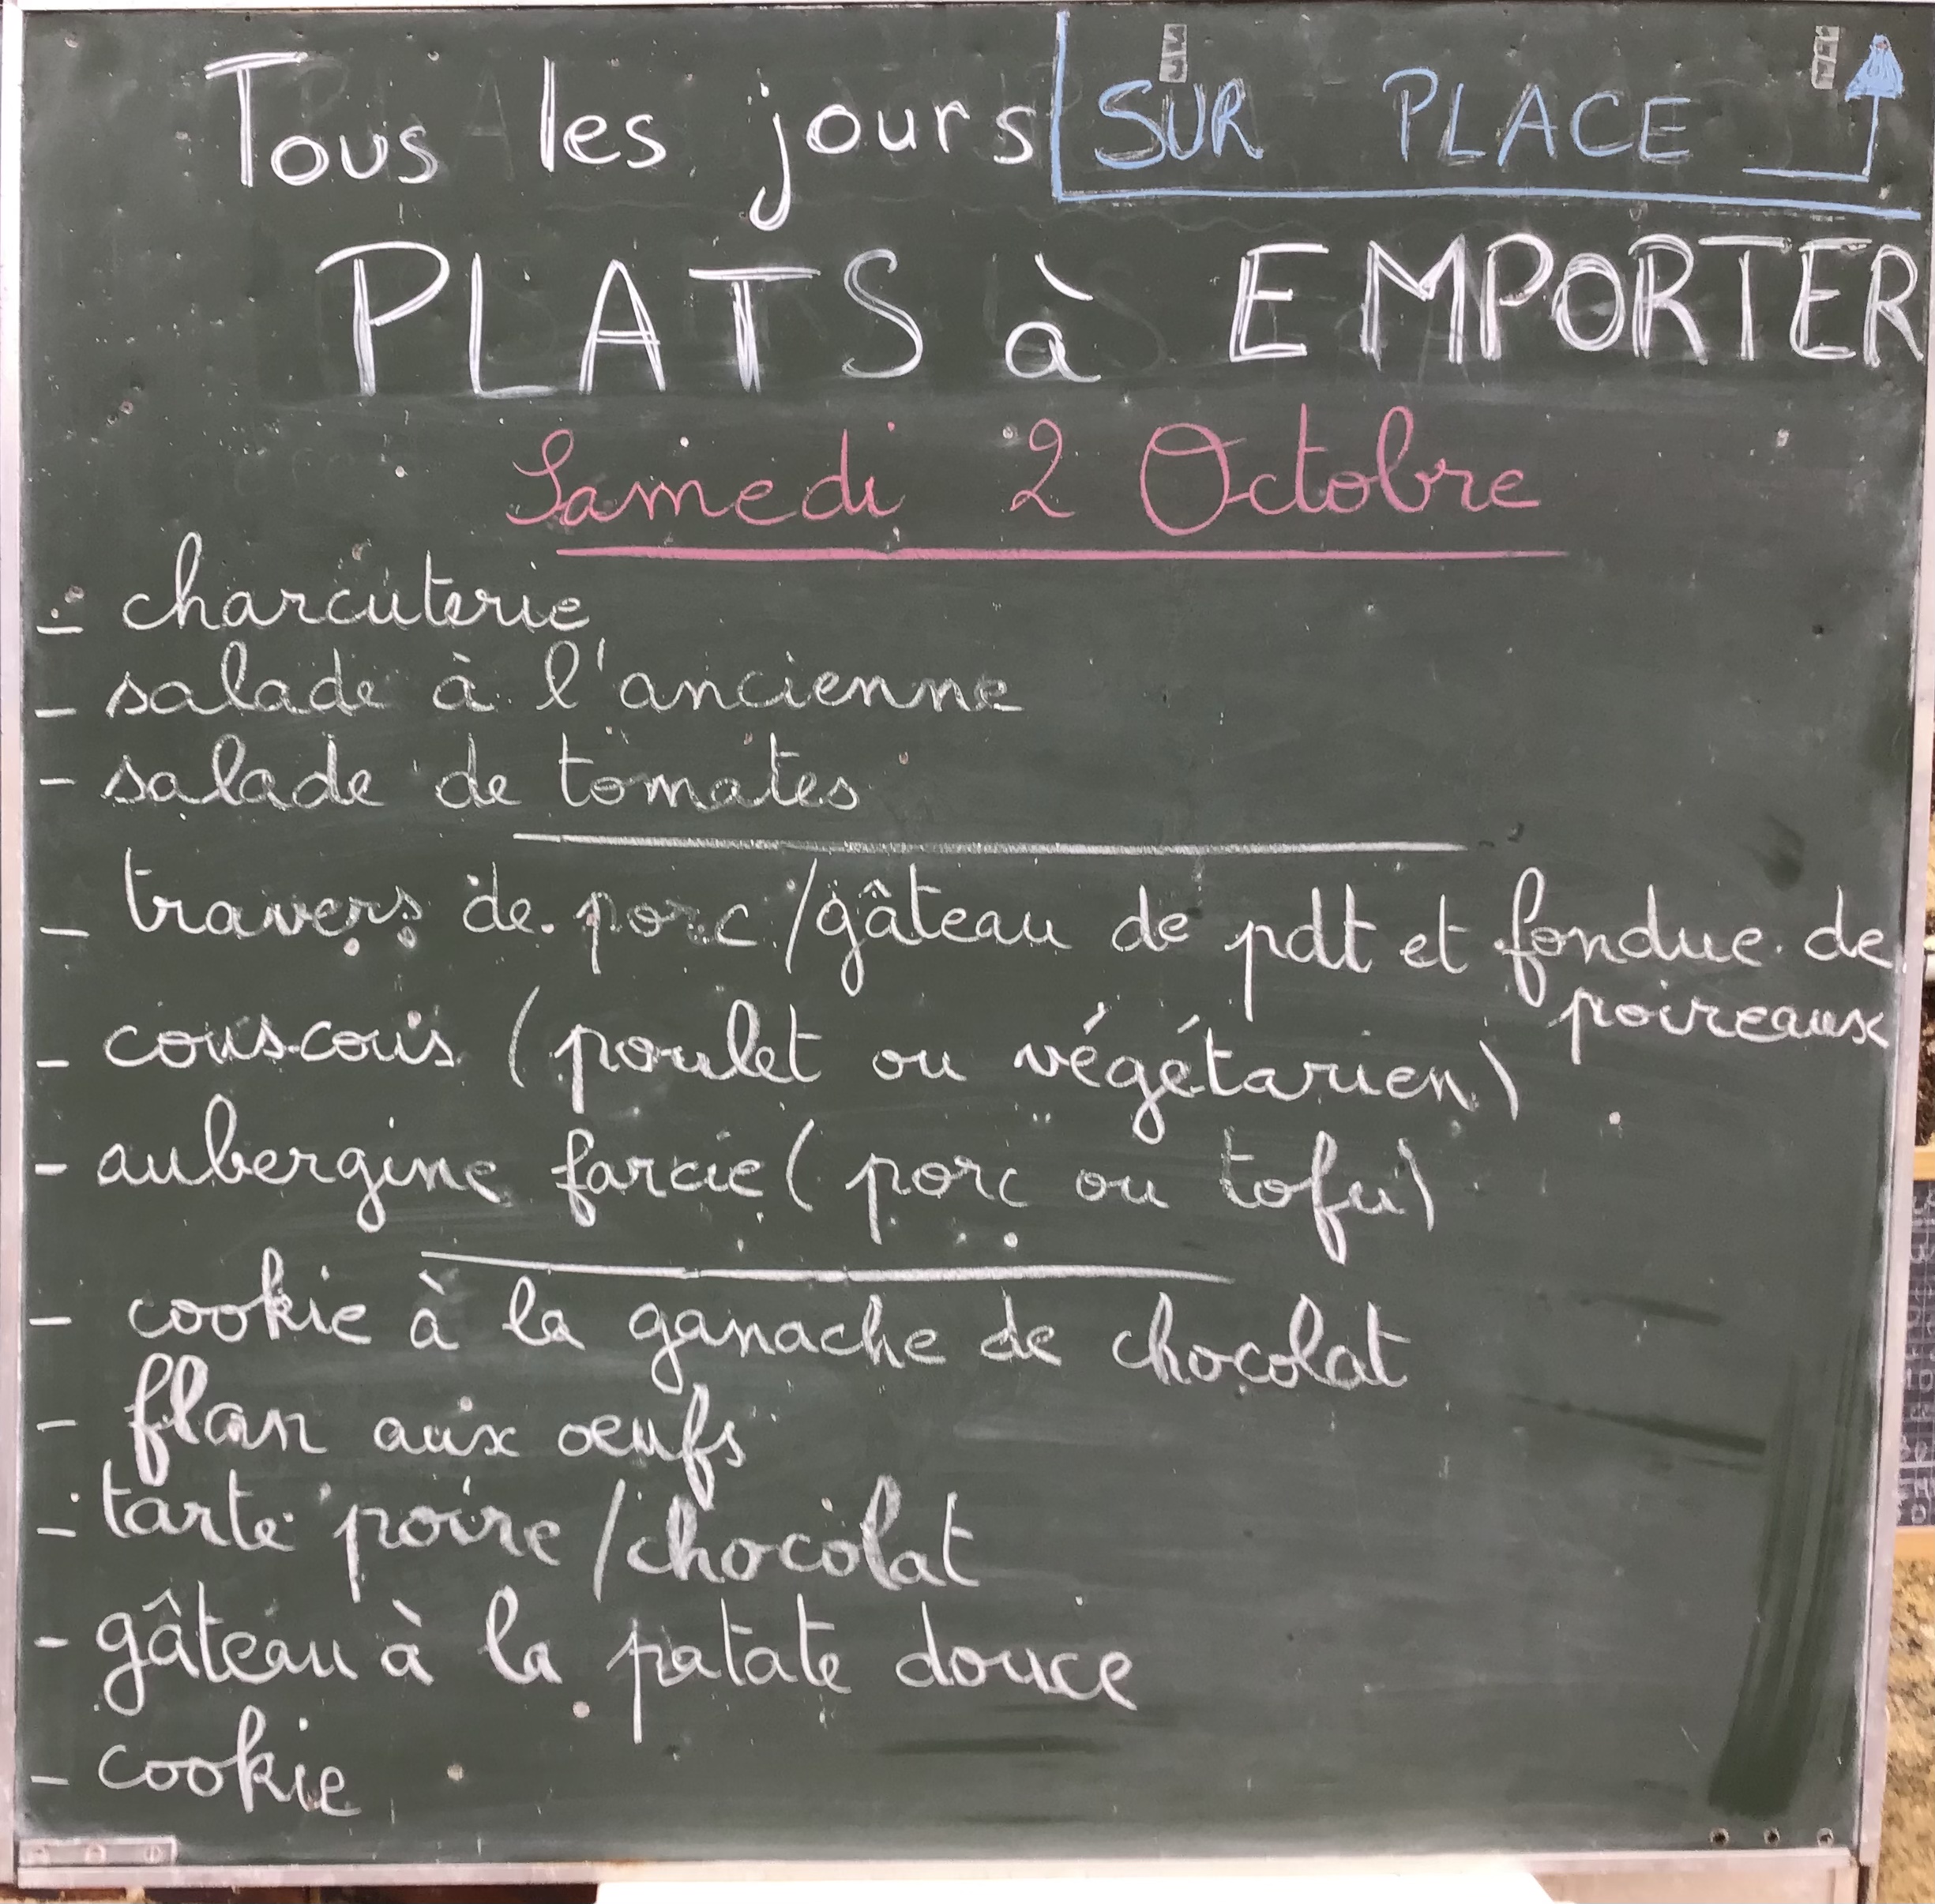 Tous les jours
SUR PLACE
PLATS à EMPORTER
Samedi 2 Octobre
- charcuterie
- salade à l'ancienne
- salade de tomates
- travers de porc / gâteau de pdt et fondue de
poireaux
- couscous (poulet ou végétarien)
- aubergine farcie (porc ou tofu)
- cookie à la ganache de chocolat
- flan aux oeufs
- tarte poire / chocolat
- gâteau à la patate douce
- cookie